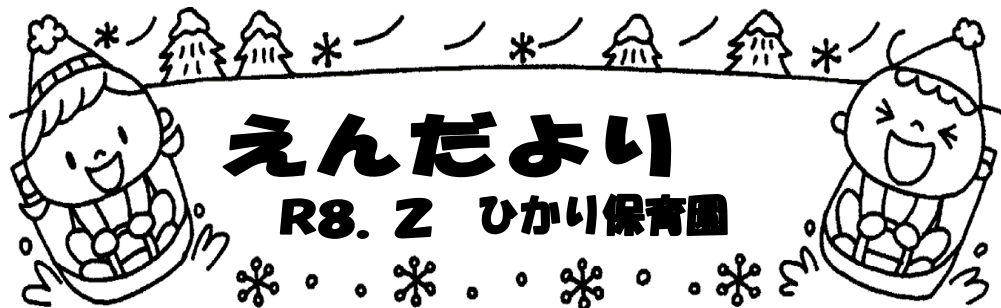 えんだより
R8.2 ひかり保育園